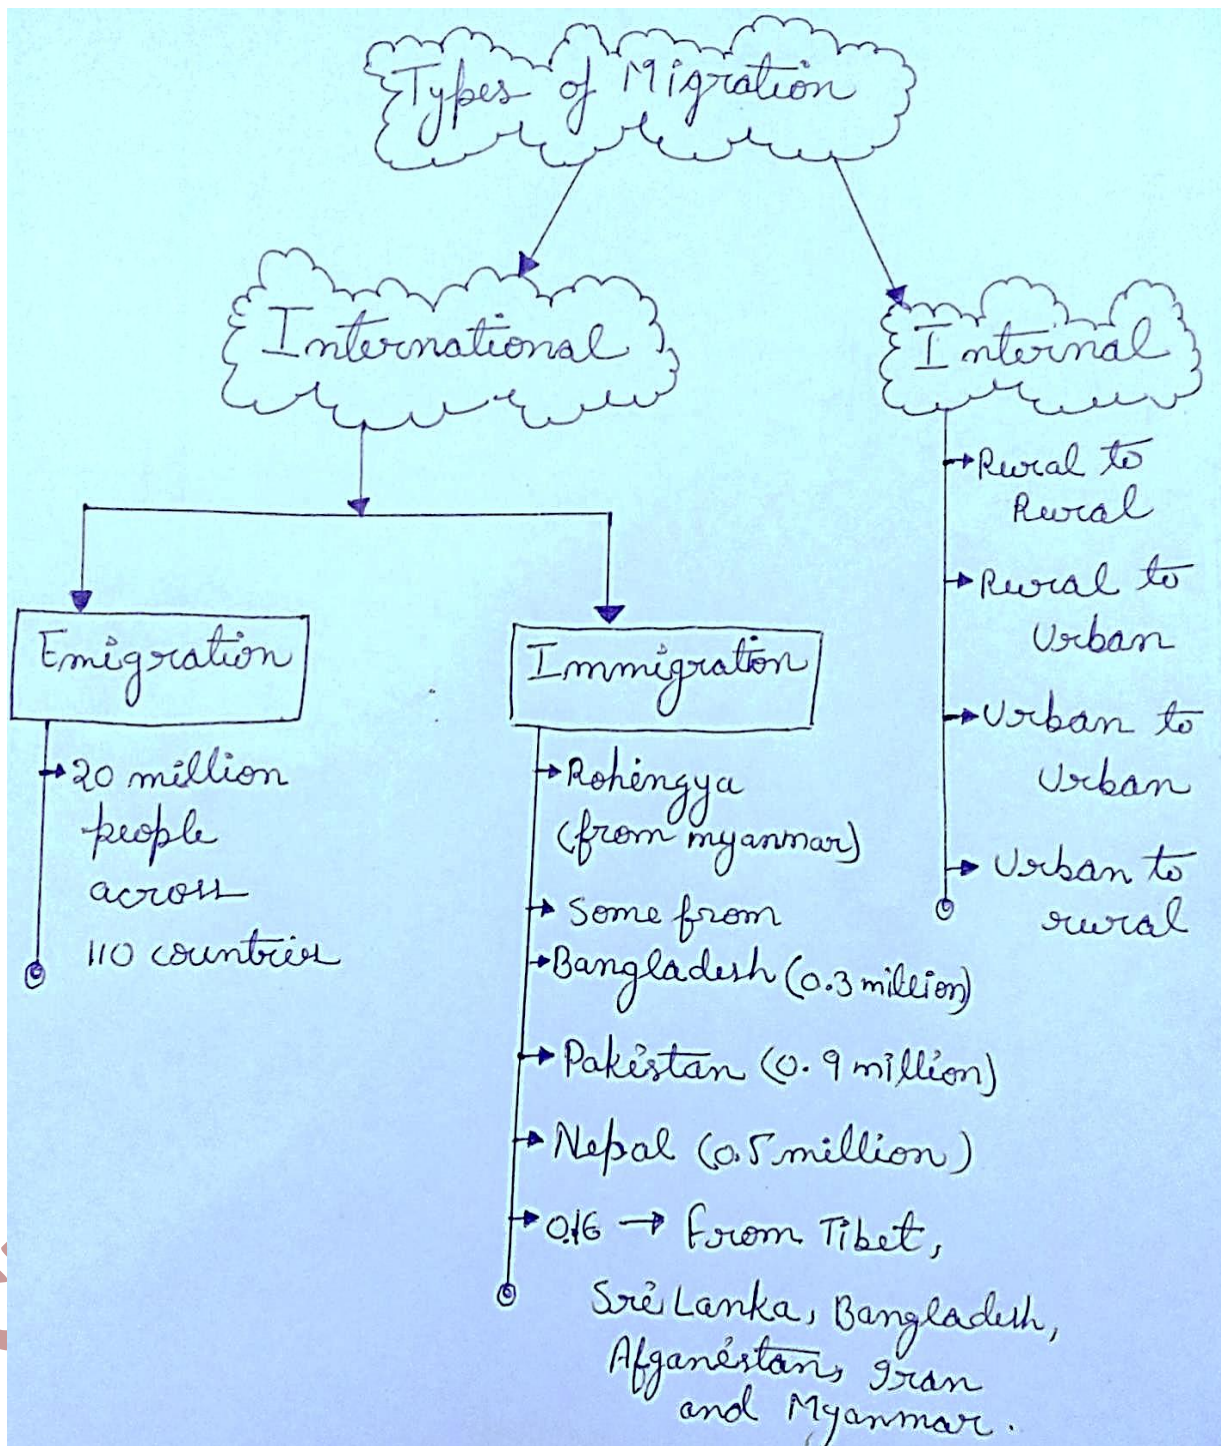 Types of Migration
International
Internal
Emigration
20 million
people
across
110 countries
Immigration
Rohingya
(from myanmar)
Some from
Bangladesh (0.3 million)
Pakistan (0.9 million)
Nepal (0.5 million)
0.16 → From Tibet,
Sri Lanka, Bangladesh,
Afganistan, Iran
and Myanmar.
Rural to
Rural
Rural to
Urban
Urban to
Urban
Urban to
rural